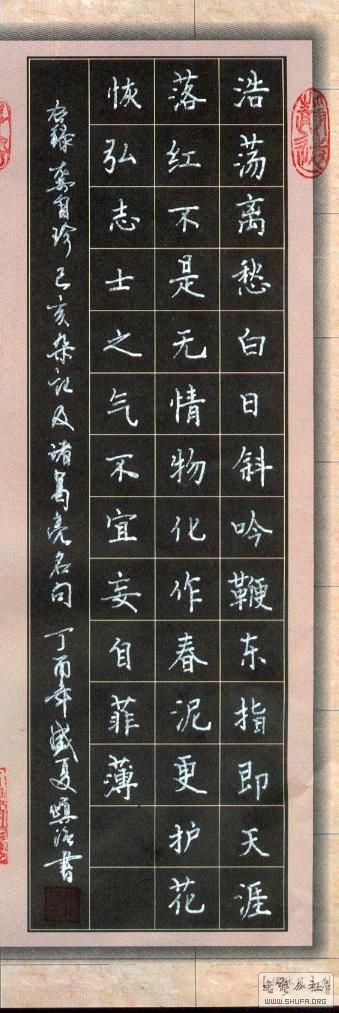 浩荡离愁白日斜吟鞭东指即天涯
落红不是无情物化作春泥更护花
恢弘志士之气不宜妄自菲薄
右录龚自珍己亥杂记及诸葛亮名句 丁酉年盛夏
WWW.SHUFA.ORG